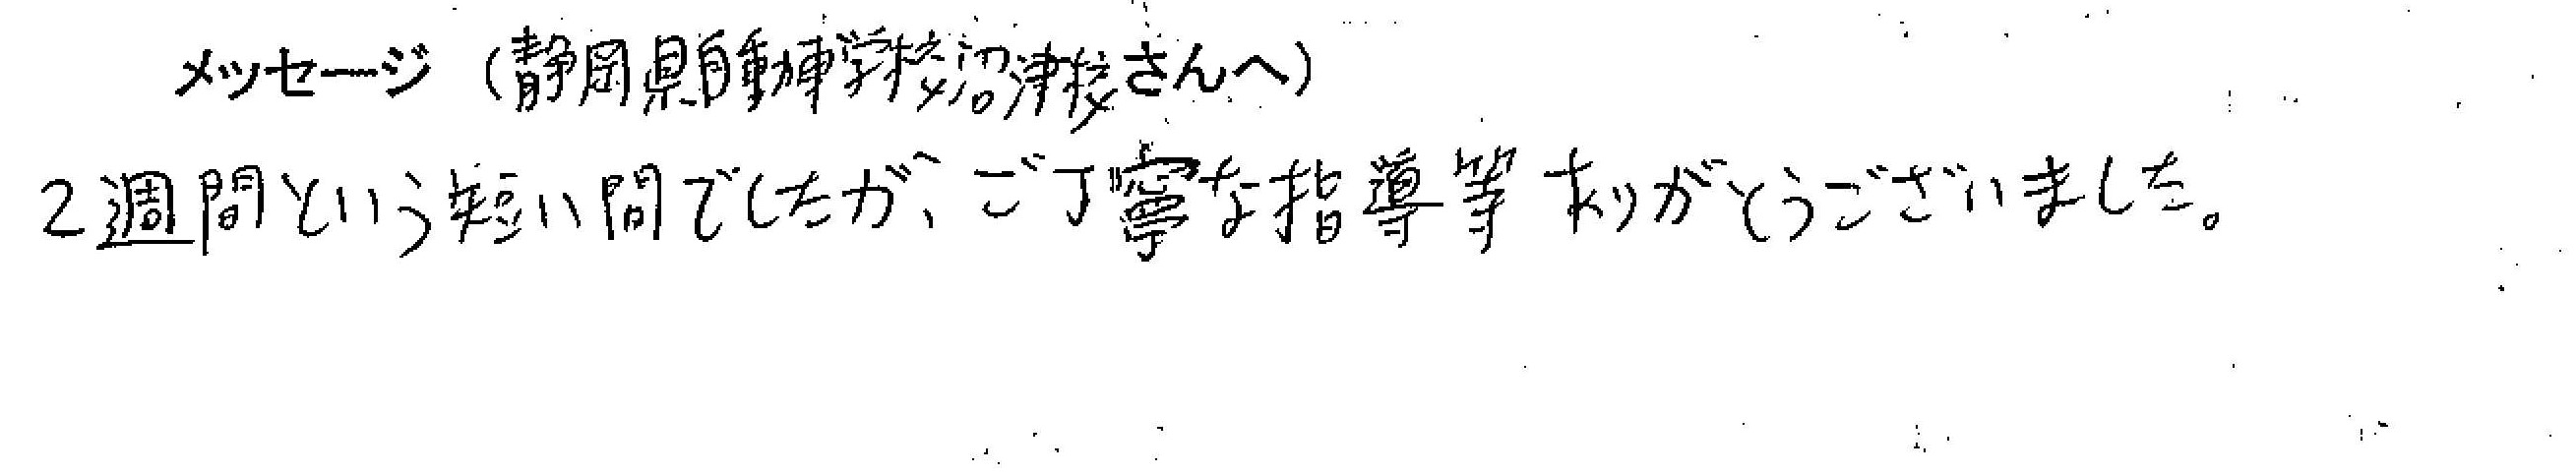 メッセージ（静岡県自動車学校沼津校さんへ）
2週間という短い間でしたが、ご丁寧な指導等ありがとうございました。